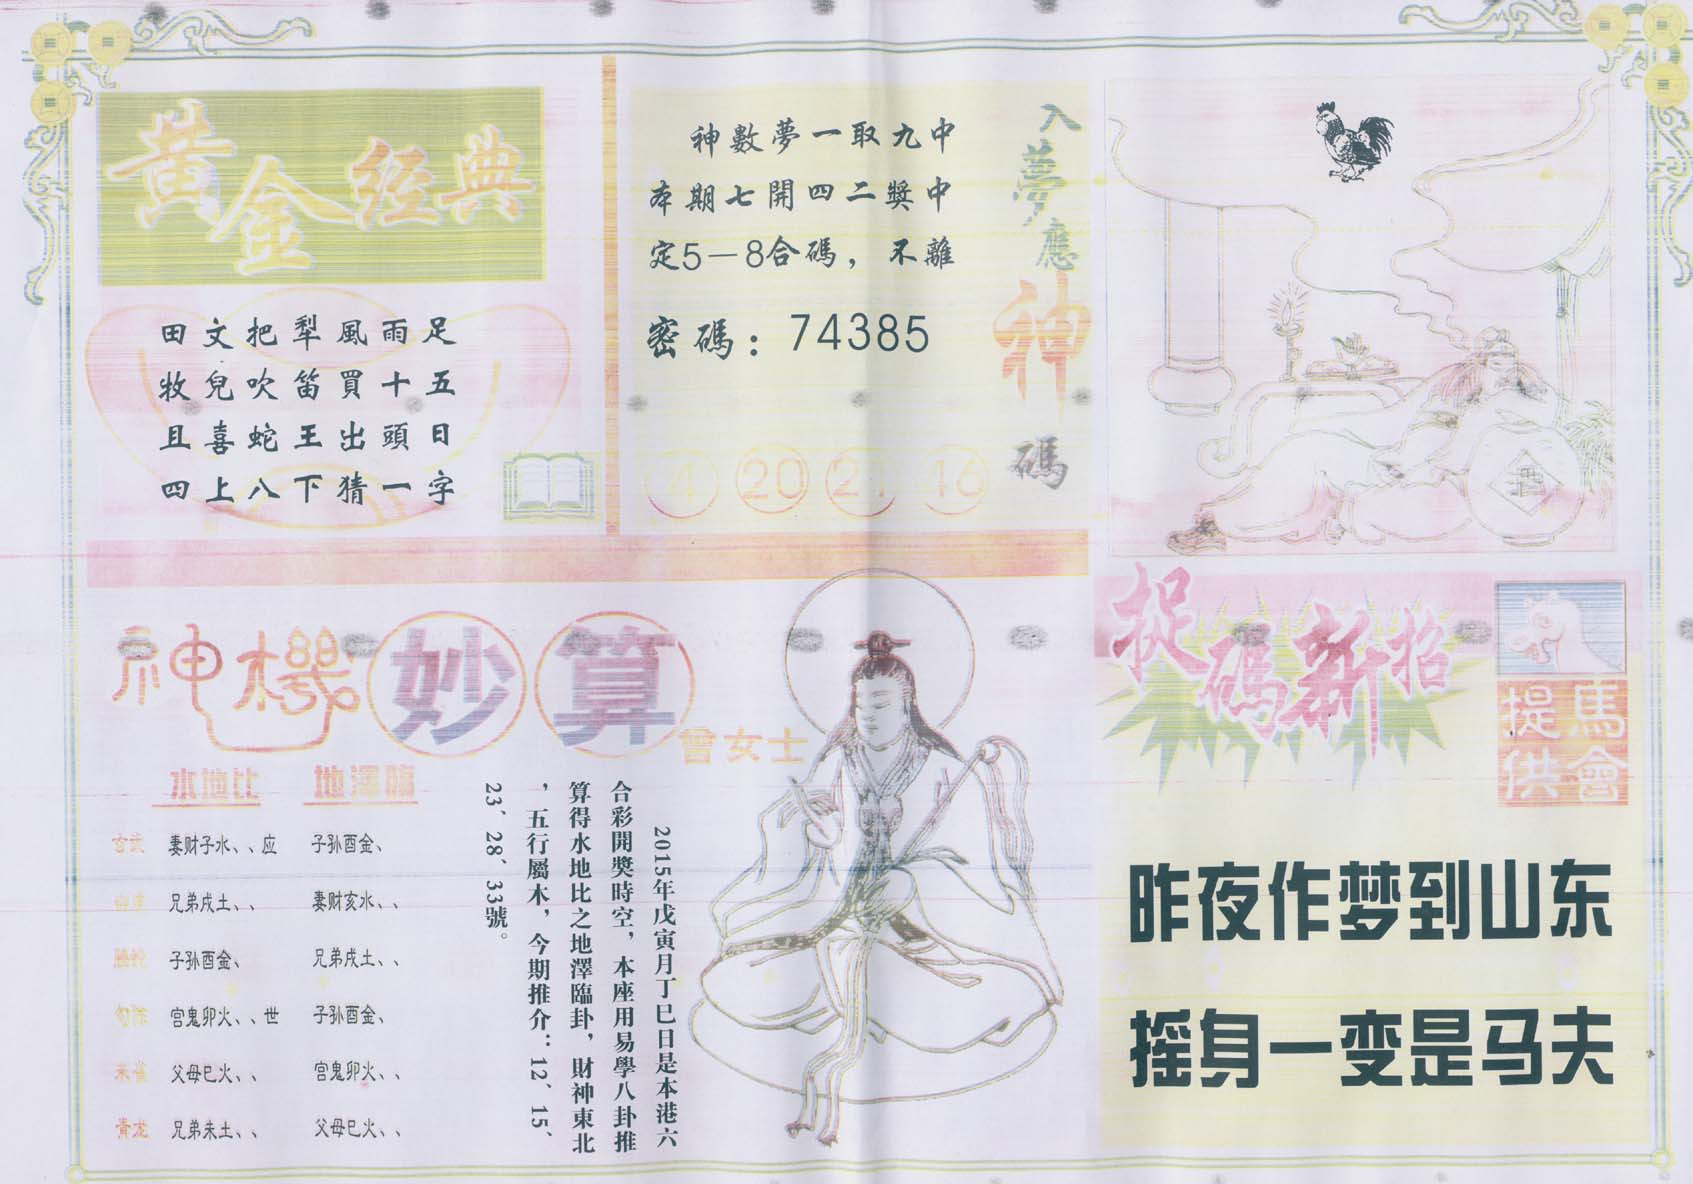 黄金经典
田文把犁風雨足
牧兒吹笛買十五
且喜蛇王出頭日
四上八下猜一字
入夢應神碼
神數夢一取九中
本期七開四二獎中
定5－8合碼，不離
密碼：74385
4 20 21 46
酒
神機妙算
曾女士
水地比 地澤臨
玄武 妻财子水、、应 子孙酉金、
白虎 兄弟戍土、、 妻财亥水、、
螣蛇 子孙酉金、 兄弟戍土、、
勾陈 宫鬼卯火、、世 子孙酉金、
朱雀 父母巳火、、 宫鬼卯火、、
青龙 兄弟未土、、 父母巳火、、
2015年戊寅月丁巳日是本港六
合彩開獎時空，本座用易學八卦推
算得水地比之地澤臨卦，財神東北
，五行屬木，今期推介：12、15、
23、28、33號。
捉碼新招
馬會提供
昨夜作梦到山东
摇身一变是马夫